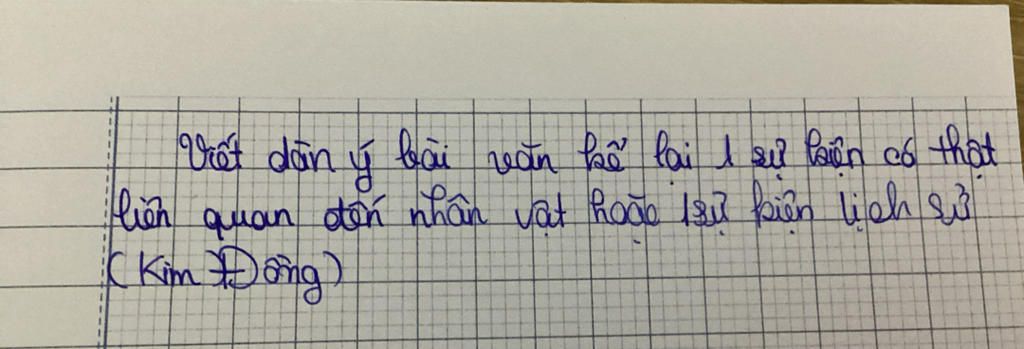 Viết dàn ý bài văn kể lại 1 sự kiện có thật
liên quan đến nhân vật hoặc 1 sự kiện lịch sử
(Kim Đồng)